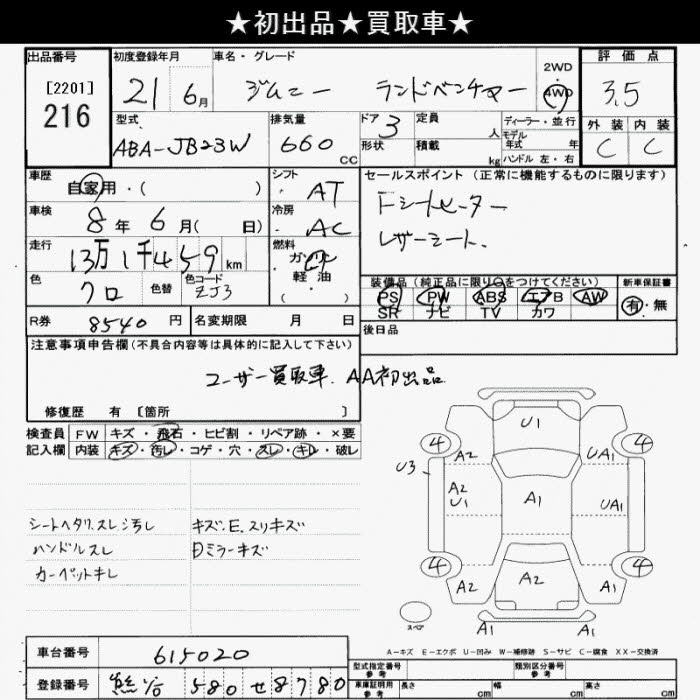 ★初出品★買取車★
出品番号 初度登録年月 車名・グレード 2WD 評価点
[2201] 216 21 6月 ジムニー ランドベンチャー 4WD 3.5
型式 排気量 ドア 定員 ディーラー・並行 外装 内装
ABA-JB23W 660 CC 3 人 モデル年式 年 C C
形状 積載 kg ハンドル 左・右
車歴 シフト セールスポイント (正常に機能するものに限ります)
自家用・( ) AT Fシートヒーター
車検 冷房 レザーシート.
8年 6月( 日) AC
走行 燃料
13万1千459km ガソリン
軽油
( )
色 色替 色コード 装備品 (純正品に限り○をつけてください) 新車保証書
クロ ZJ3 PS PW ABS エアB AW 有・無
SR ナビ TV カワ
R券 8540円 名変期限 月 日 後日品
注意事項申告欄(不具合内容等は具体的に記入して下さい)
ユーザー買取車. AA初出品
修復歴 有 [箇所 ]
検査員 FW キズ・飛石・ヒビ割・リペア跡・×要
記入欄 内装 キズ・汚レ・コゲ・穴・スレ・キレ・破レ
シートヘタリ.スレ.汚レ キズ.E.スリキズ
ハンドルスレ Dミラーキズ
カーペットキレ
U1
4 4
A2 UA1
U3
A2 U1 A1 UA1
4 4
A2 A2 A1
スペア A1 A1
A-キズ E-エクボ U-凹み W-補修跡 S-サビ C-腐食 XX-交換済
車台番号 615020 型式指定番号 参考 類別区分番号 参考
登録番号 熊谷 580 せ 8780 車庫証明用 参考 長さ cm 幅 cm 高さ cm